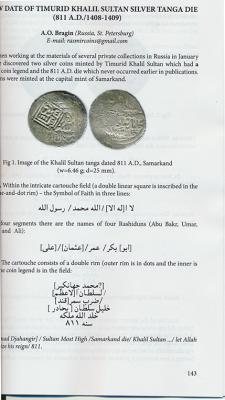 W DATE OF TIMURID KHALIL SULTAN SILVER TANGA DIE
(811 A.D./1408-1409)
A.O. Bragin (Russia, St. Petersburg)
E-mail: rasmircoins@gmail.com
hen working at the materials of several private collections in Russia in January
discovered two silver coins minted by Timurid Khalil Sultan which had a
coin legend and the 811 A.D. die which never occurred earlier in publications.
ns were minted at the capital mint of Samarkand.
Fig 1. Image of the Khalil Sultan tanga dated 811 A.D., Samarkand
(w=6.46 g; d=25 mm).
Within the intricate cartouche field (a double linear square is inscribed in the
e-and-dot rim) – the Symbol of Faith in three lines:
لا [اله الا] / الله محمد / رسول الله
four segments there are names of four Rashiduns (Abu Bakr, Umar,
and Ali):
[ابو] بكر / عمر / [عثمان] / [علی]
The cartouche consists of a double rim (outer rim is in dots and the inner is
he coin legend is in the field:
[?محمد جهانكير]
/ لسلطان [الاعظم]
/ ضرب سمر [قند]
خليل سلطان [بحادر]
خلد الله ملكه
سنه ٨١١
mad Djahangir] / Sultan Most High /Samarkand die/ Khalil Sultan .../ let Allah
ize his reign/ 811.
143